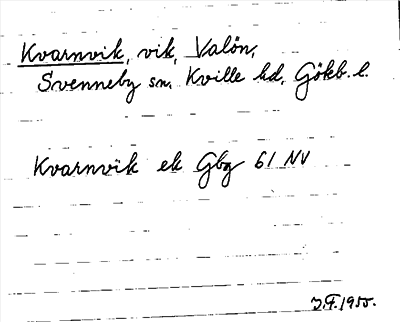 Kvarnvik, vik, Valön,
Svenneby sn, Kville hd, Gökb. l.
Kvarnvik ek Gbg 61 NV
J.F. 1955.